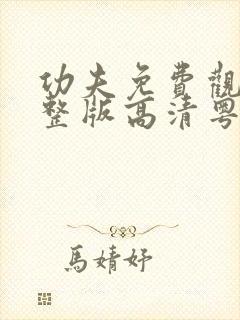 功夫免費觀
整版高清粵
馬婧妤